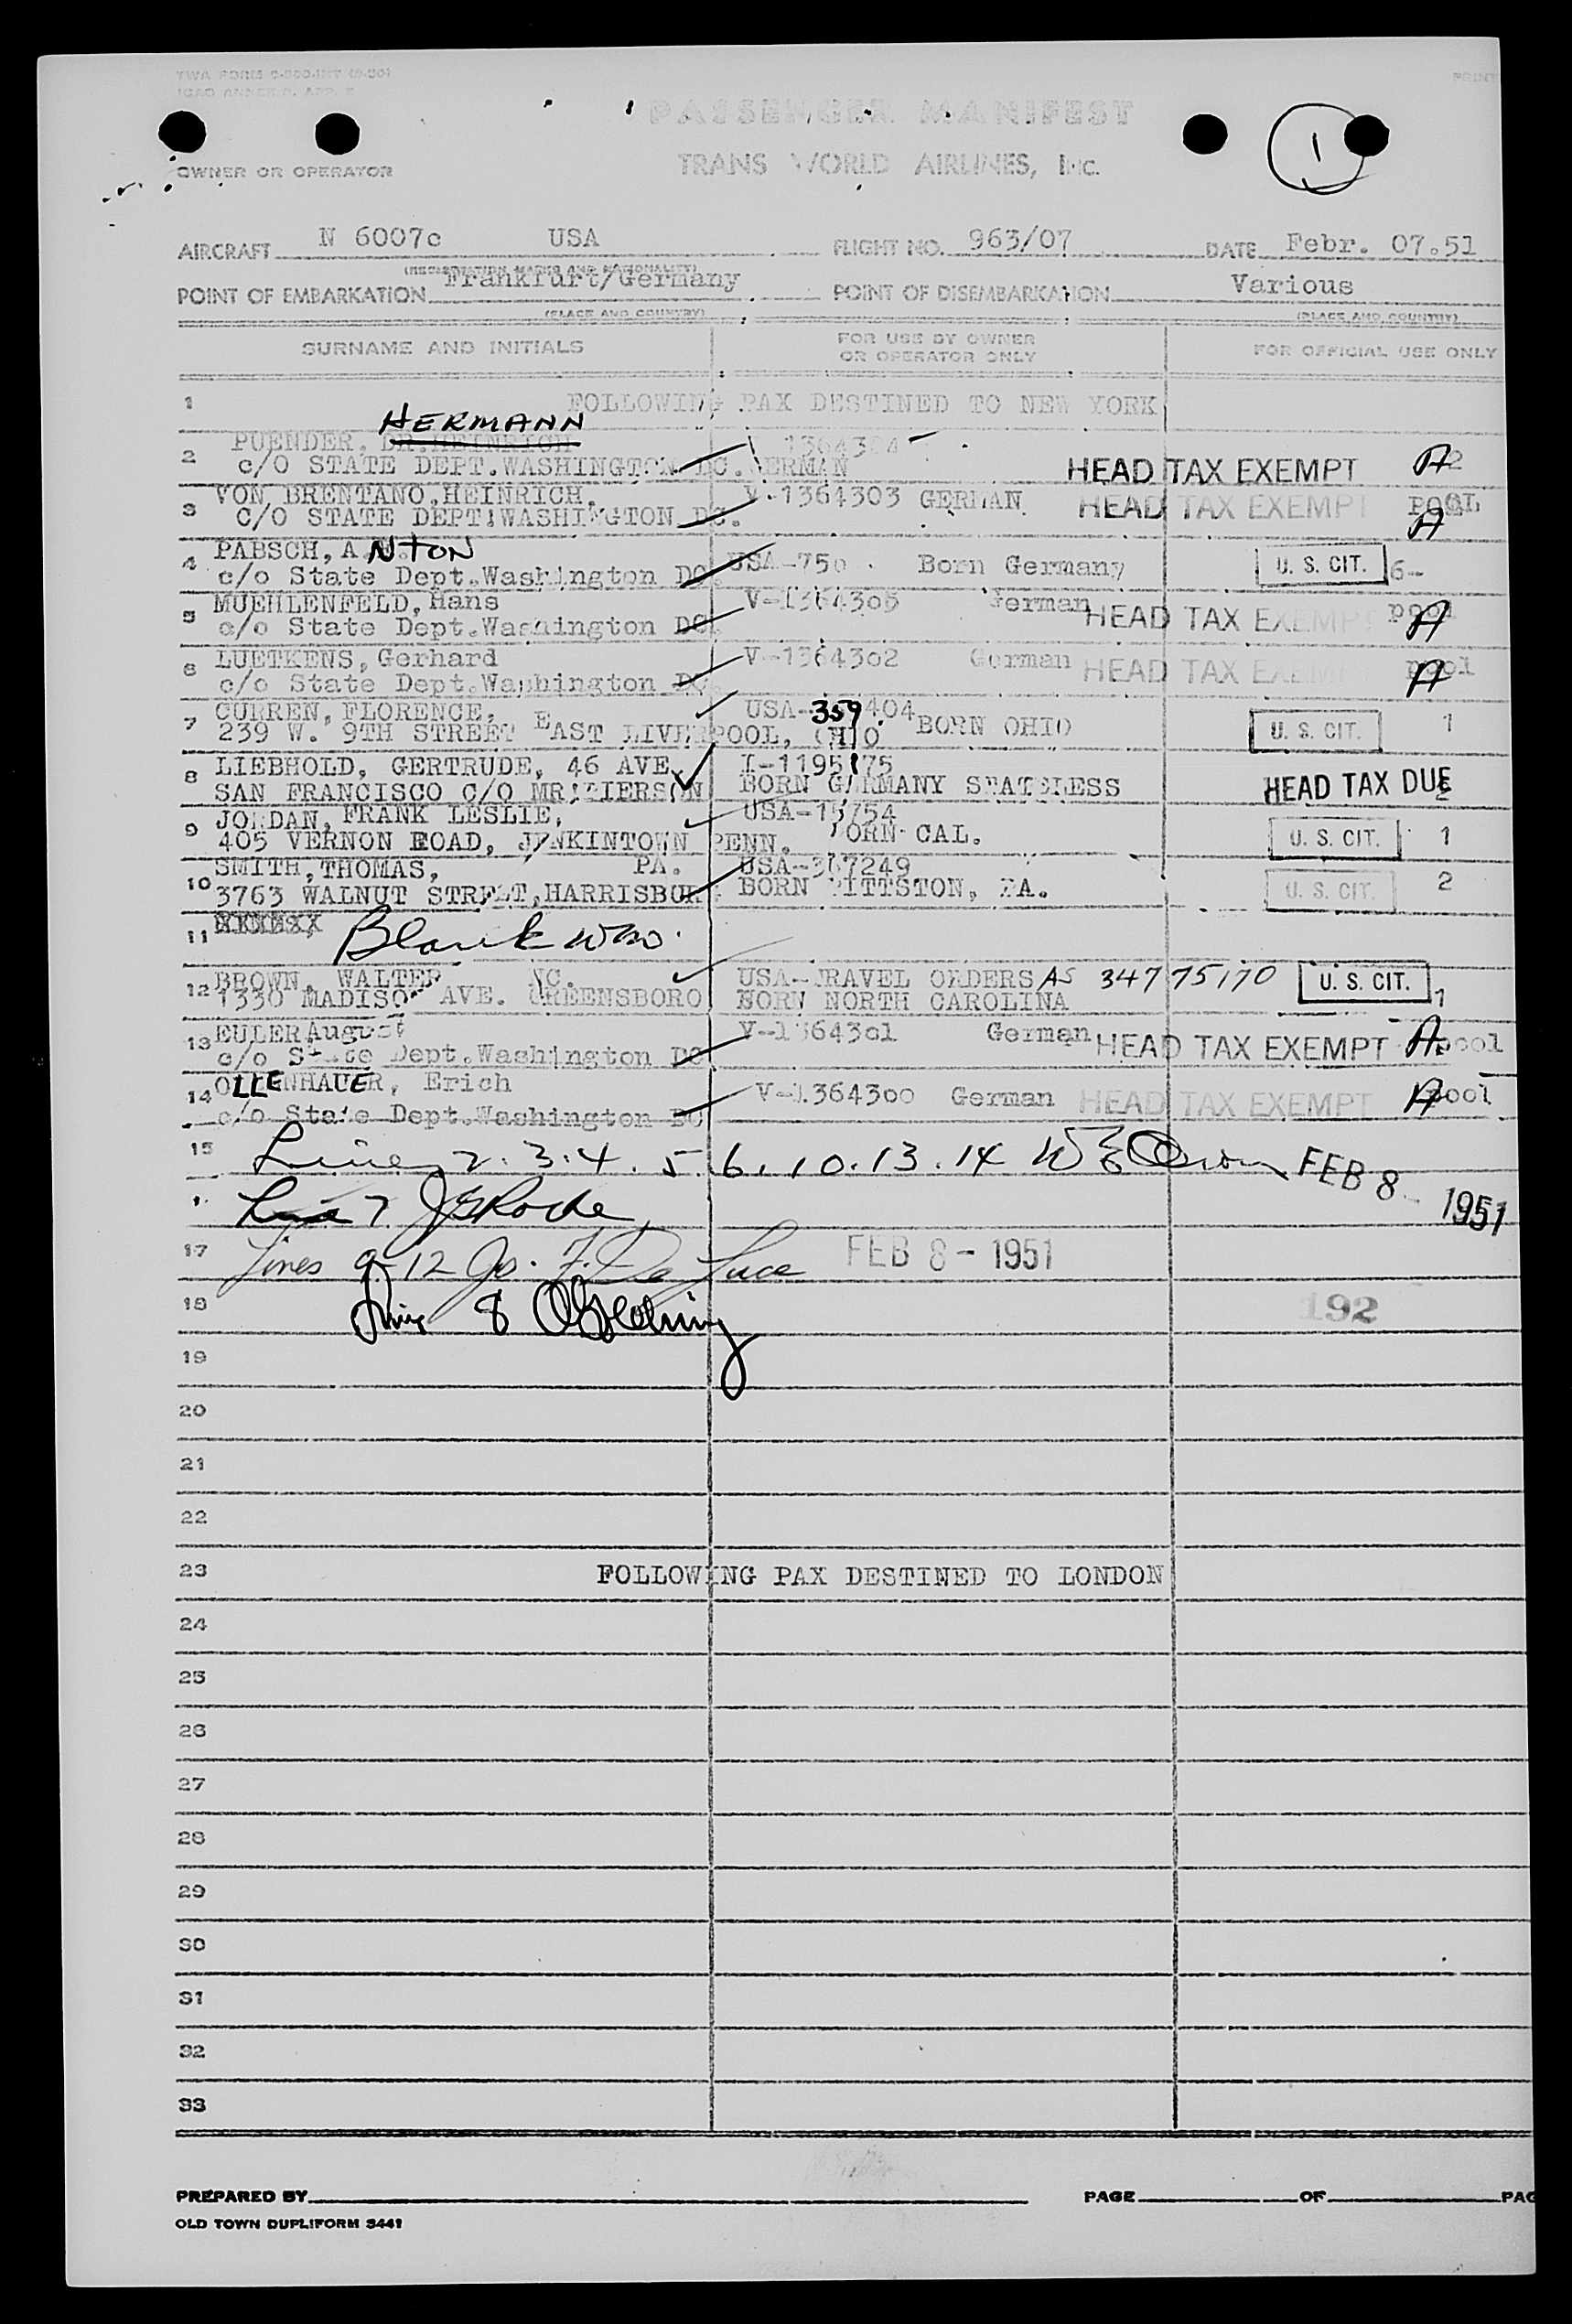 TWA FORM
PASSENGER MANIFEST
1
OWNER OR OPERATOR
TRANS WORLD AIRLINES, Inc.
AIRCRAFT N 6007c USA FLIGHT NO. 963/07 DATE Febr. 07.51
(REGISTRATION MARKS AND NATIONALITY)
POINT OF EMBARKATION Frankfurt/Germany POINT OF DISEMBARKATION Various
(PLACE AND COUNTRY) (PLACE AND COUNTRY)
SURNAME AND INITIALS FOR USE BY OWNER OR OPERATOR ONLY FOR OFFICIAL USE ONLY
1 FOLLOWING PAX DESTINED TO NEW YORK
HERMANN
2 PUENDER, DR.HEINRICH
c/o STATE DEPT.WASHINGTON DC. GERMAN HEAD TAX EXEMPT A
3 VON BRENTANO,HEINRICH, V-1364303 GERMAN HEAD TAX EXEMPT POOL
C/O STATE DEPT.WASHINGTON DC. A
4 PABSCH, ANTON USA-750 Born Germany U. S. CIT. 6-
c/o State Dept.Washington DC.
5 MUEHLENFELD, Hans V-1364305 German HEAD TAX EXEMPT pool
c/o State Dept.Washington DC. A
6 LUETKENS, Gerhard V-1364302 German HEAD TAX EXEMPT pool
c/o State Dept.Washington DC. A
7 CURREN, FLORENCE, USA-359404 BORN OHIO U. S. CIT. 1
239 W. 9TH STREET EAST LIVERPOOL, OHIO
8 LIEBHOLD, GERTRUDE, 46 AVE. I-1195175
SAN FRANCISCO C/O MR. BORN GERMANY STATELESS HEAD TAX DUE
9 JORDAN, FRANK LESLIE, USA-15754
405 VERNON ROAD, JENKINTOWN PENN. BORN CAL. U. S. CIT. 1
10 SMITH, THOMAS, PA. USA-367249
3763 WALNUT STREET,HARRISBURG BORN PITTSTON, PA. U. S. CIT. 2
11 Blank
12 BROWN, WALTER NC. USA-TRAVEL ORDERS AS 34775170 U. S. CIT. 1
1330 MADISON AVE. GREENSBORO BORN NORTH CAROLINA
13 EULER August V-1364301 German HEAD TAX EXEMPT A pool
c/o State Dept.Washington DC
14 OLLENHAUER, Erich V-1364300 German HEAD TAX EXEMPT A pool
c/o State Dept.Washington DC
15 Lines 2.3.4.5.6.10.13.14 FEB 8 - 1951
Line 7
17 Lines 9-12 Js. F. De Luca FEB 8 - 1951
18 Line 8 192
19
20
21
22
23 FOLLOWING PAX DESTINED TO LONDON
24
25
26
27
28
29
30
31
32
33
PREPARED BY PAGE OF PAG
OLD TOWN DUPLIFORM 3441